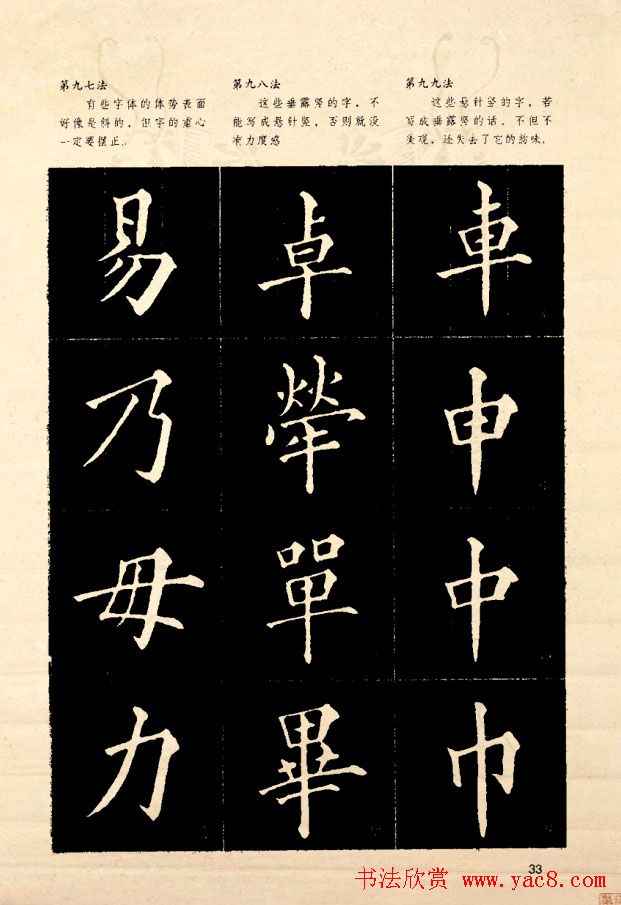 第九七法
有些字体的体势表面
好像是斜的，但字的重心
一定要摆正。
第九八法
这些垂露竖的字，不
能写成悬针竖，否则就没
有力度感
第九九法
这些悬针竖的字，若
写成垂露竖的话，不但不
美观，还失去了它的韵味，
易
乃
毋
力
卓
犖
單
畢
車
申
中
巾
33
书法欣赏 www.yac8.com